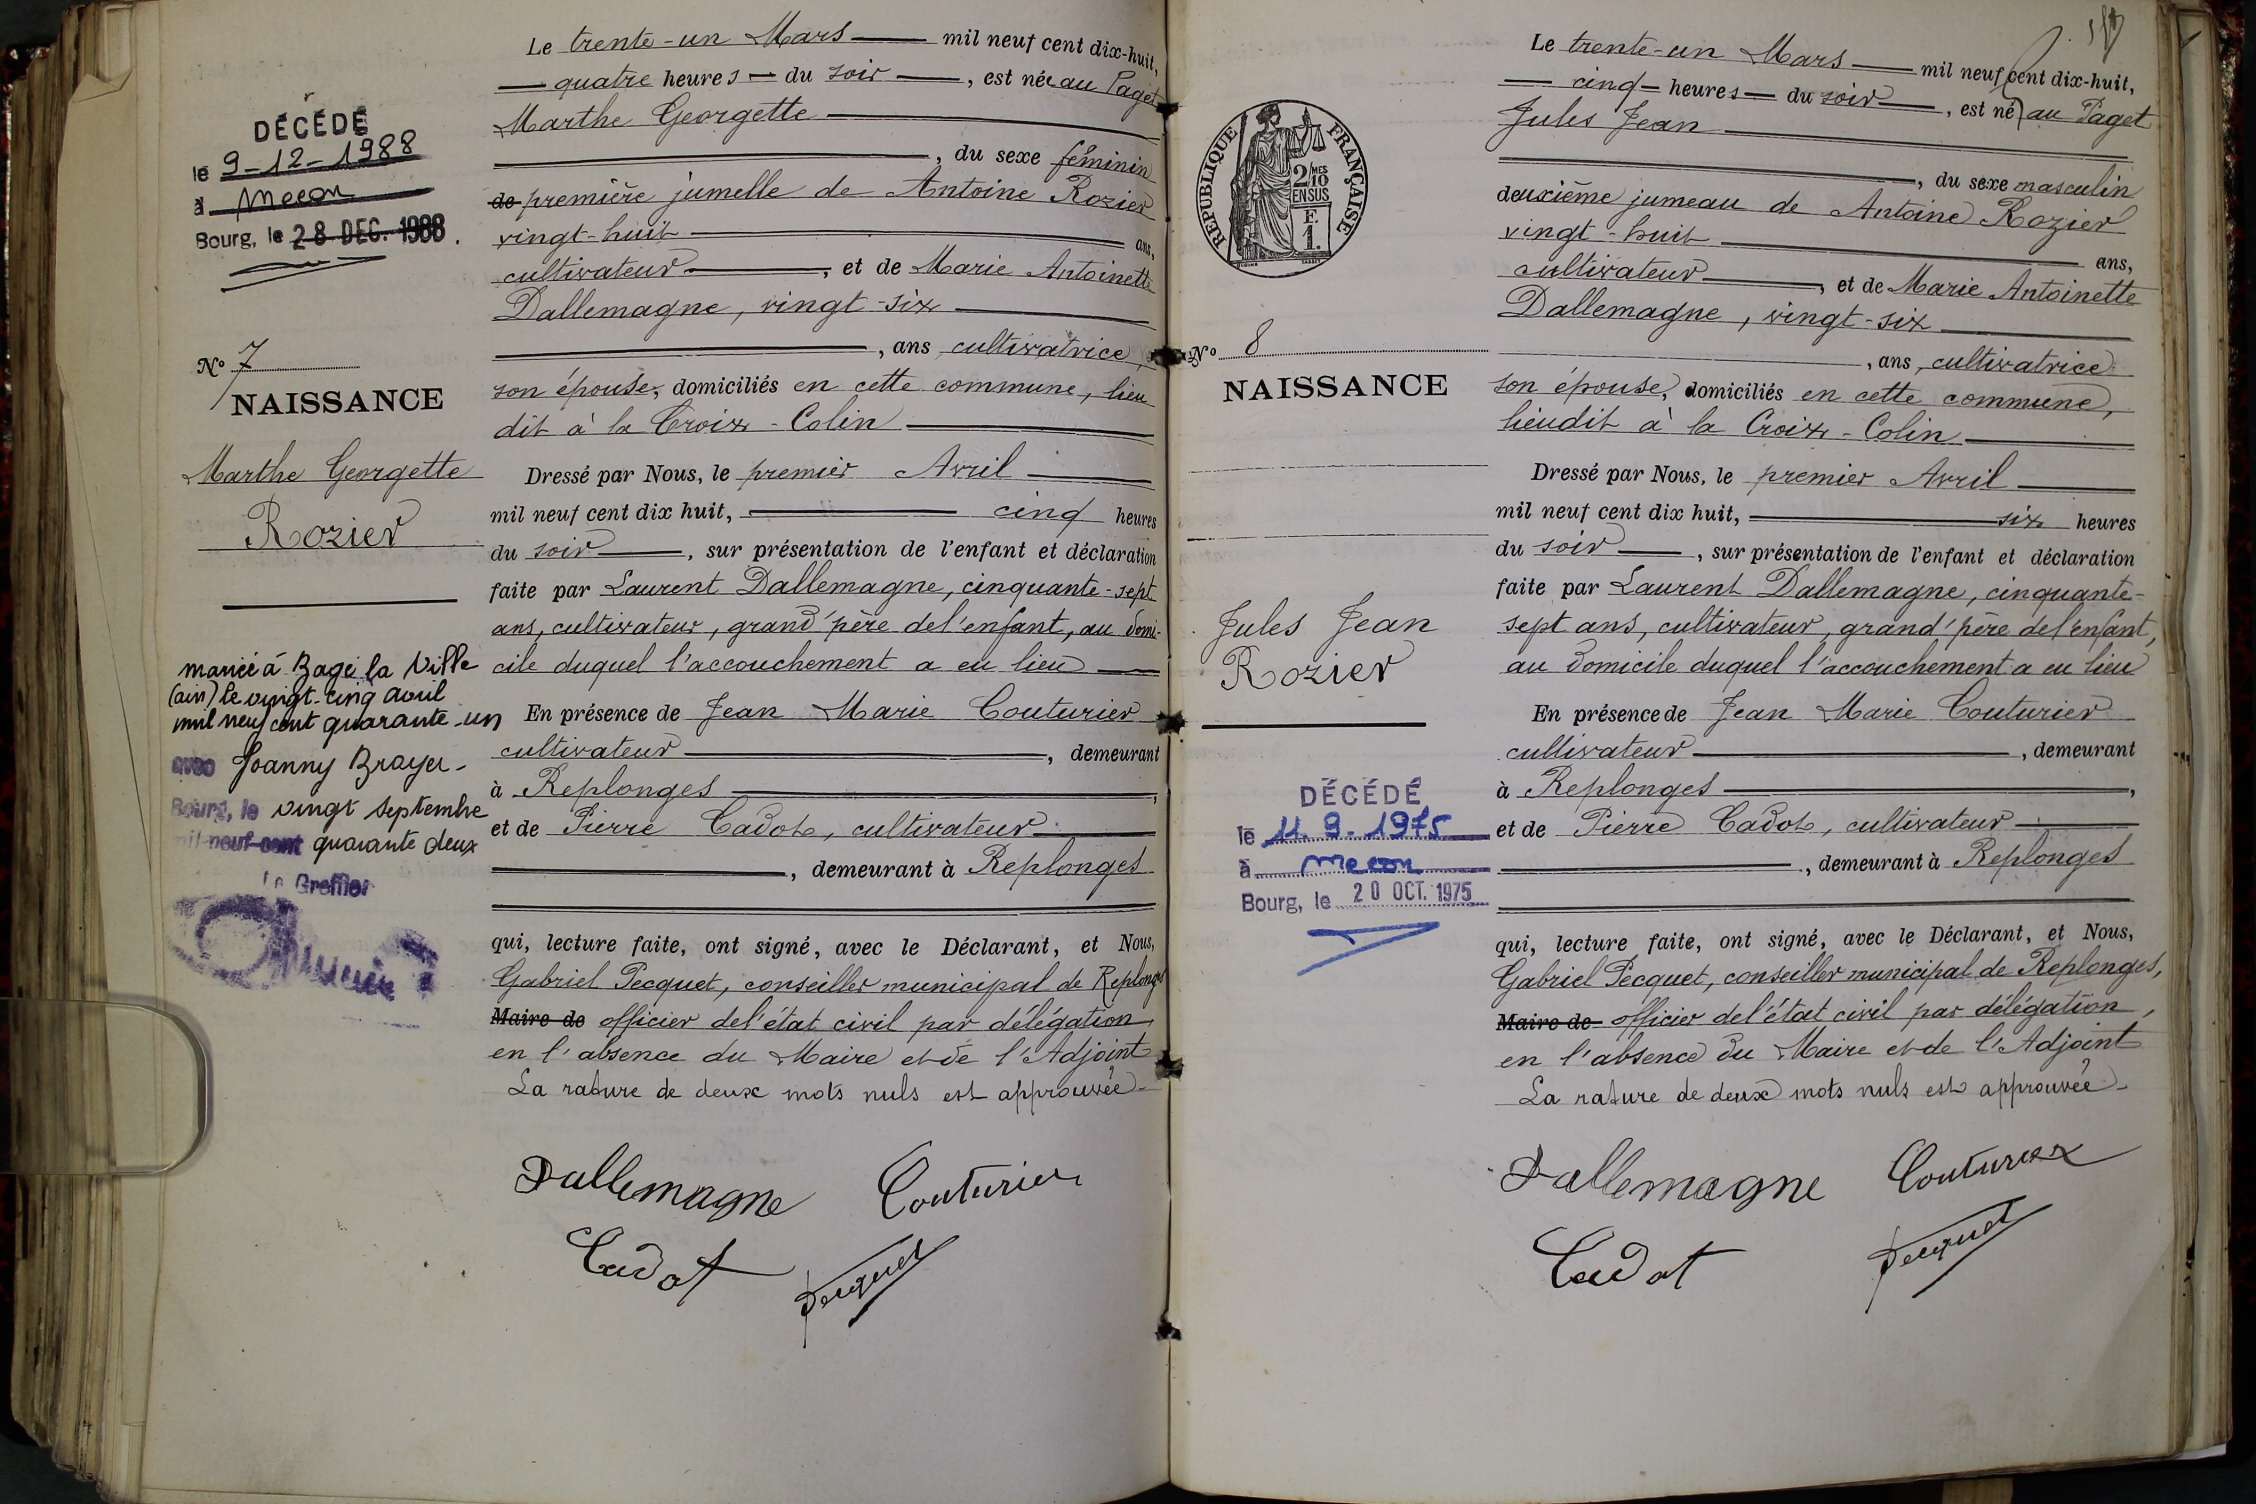 DÉCÉDÉ
le 9-12-1988
à Mecon
Bourg, le 28 DEC. 1988.
N° 7
NAISSANCE
Marthe Georgette
Rozier
mariée à Bagé la Ville
(ain) le vingt-cinq avril
mil neuf cent quarante-un
avec Joanny Brayer-
Bourg, le vingt septembre
mil neuf cent quarante deux
Le Greffier
Le trente-un Mars mil neuf cent dix-huit,
quatre heures du soir, est née au Paget
Marthe Georgette
, du sexe féminin
de première jumelle de Antoine Rozier
vingt-huit ans,
cultivateur, et de Marie Antoinette
Dallemagne, vingt-six
, ans, cultivatrice,
son épouse, domiciliés en cette commune, lieu
dit à la Croix-Colin
Dressé par Nous, le premier Avril
mil neuf cent dix huit, cinq heures
du soir, sur présentation de l'enfant et déclaration
faite par Laurent Dallemagne, cinquante-sept
ans, cultivateur, grand'père de l'enfant, au domi-
cile duquel l'accouchement a eu lieu
En présence de Jean Marie Couturier
cultivateur, demeurant
à Replonges,
et de Pierre Cadot, cultivateur
, demeurant à Replonges
qui, lecture faite, ont signé, avec le Déclarant, et Nous,
Gabriel Pecquet, conseiller municipal de Replonges
Maire de officier de l'état civil par délégation,
en l'absence du Maire et de l'Adjoint
La rature de deux mots nuls est approuvée-
Dallemagne Couturier
Cadot Pecquet
REPUBLIQUE FRANÇAISE
2/10 MES
EN SUS
F.
1.
N° 8
NAISSANCE
Jules Jean
Rozier
DÉCÉDÉ
le 11.9.1975
à Mecon
Bourg, le 20 OCT. 1975
Le trente-un Mars mil neuf cent dix-huit,
cinq heures du soir, est né au Paget
Jules Jean
, du sexe masculin
deuxième jumeau de Antoine Rozier
vingt-huit ans,
cultivateur, et de Marie Antoinette
Dallemagne, vingt-six
, ans, cultivatrice
son épouse, domiciliés en cette commune,
lieudit à la Croix-Colin
Dressé par Nous, le premier Avril
mil neuf cent dix huit, six heures
du soir, sur présentation de l'enfant et déclaration
faite par Laurent Dallemagne, cinquante-
sept ans, cultivateur, grand'père de l'enfant,
au domicile duquel l'accouchement a eu lieu
En présence de Jean Marie Couturier
cultivateur, demeurant
à Replonges,
et de Pierre Cadot, cultivateur
, demeurant à Replonges
qui, lecture faite, ont signé, avec le Déclarant, et Nous,
Gabriel Pecquet, conseiller municipal de Replonges,
Maire de officier de l'état civil par délégation,
en l'absence du Maire et de l'Adjoint
La rature de deux mots nuls est approuvée-
Dallemagne Couturier
Cadot Pecquet